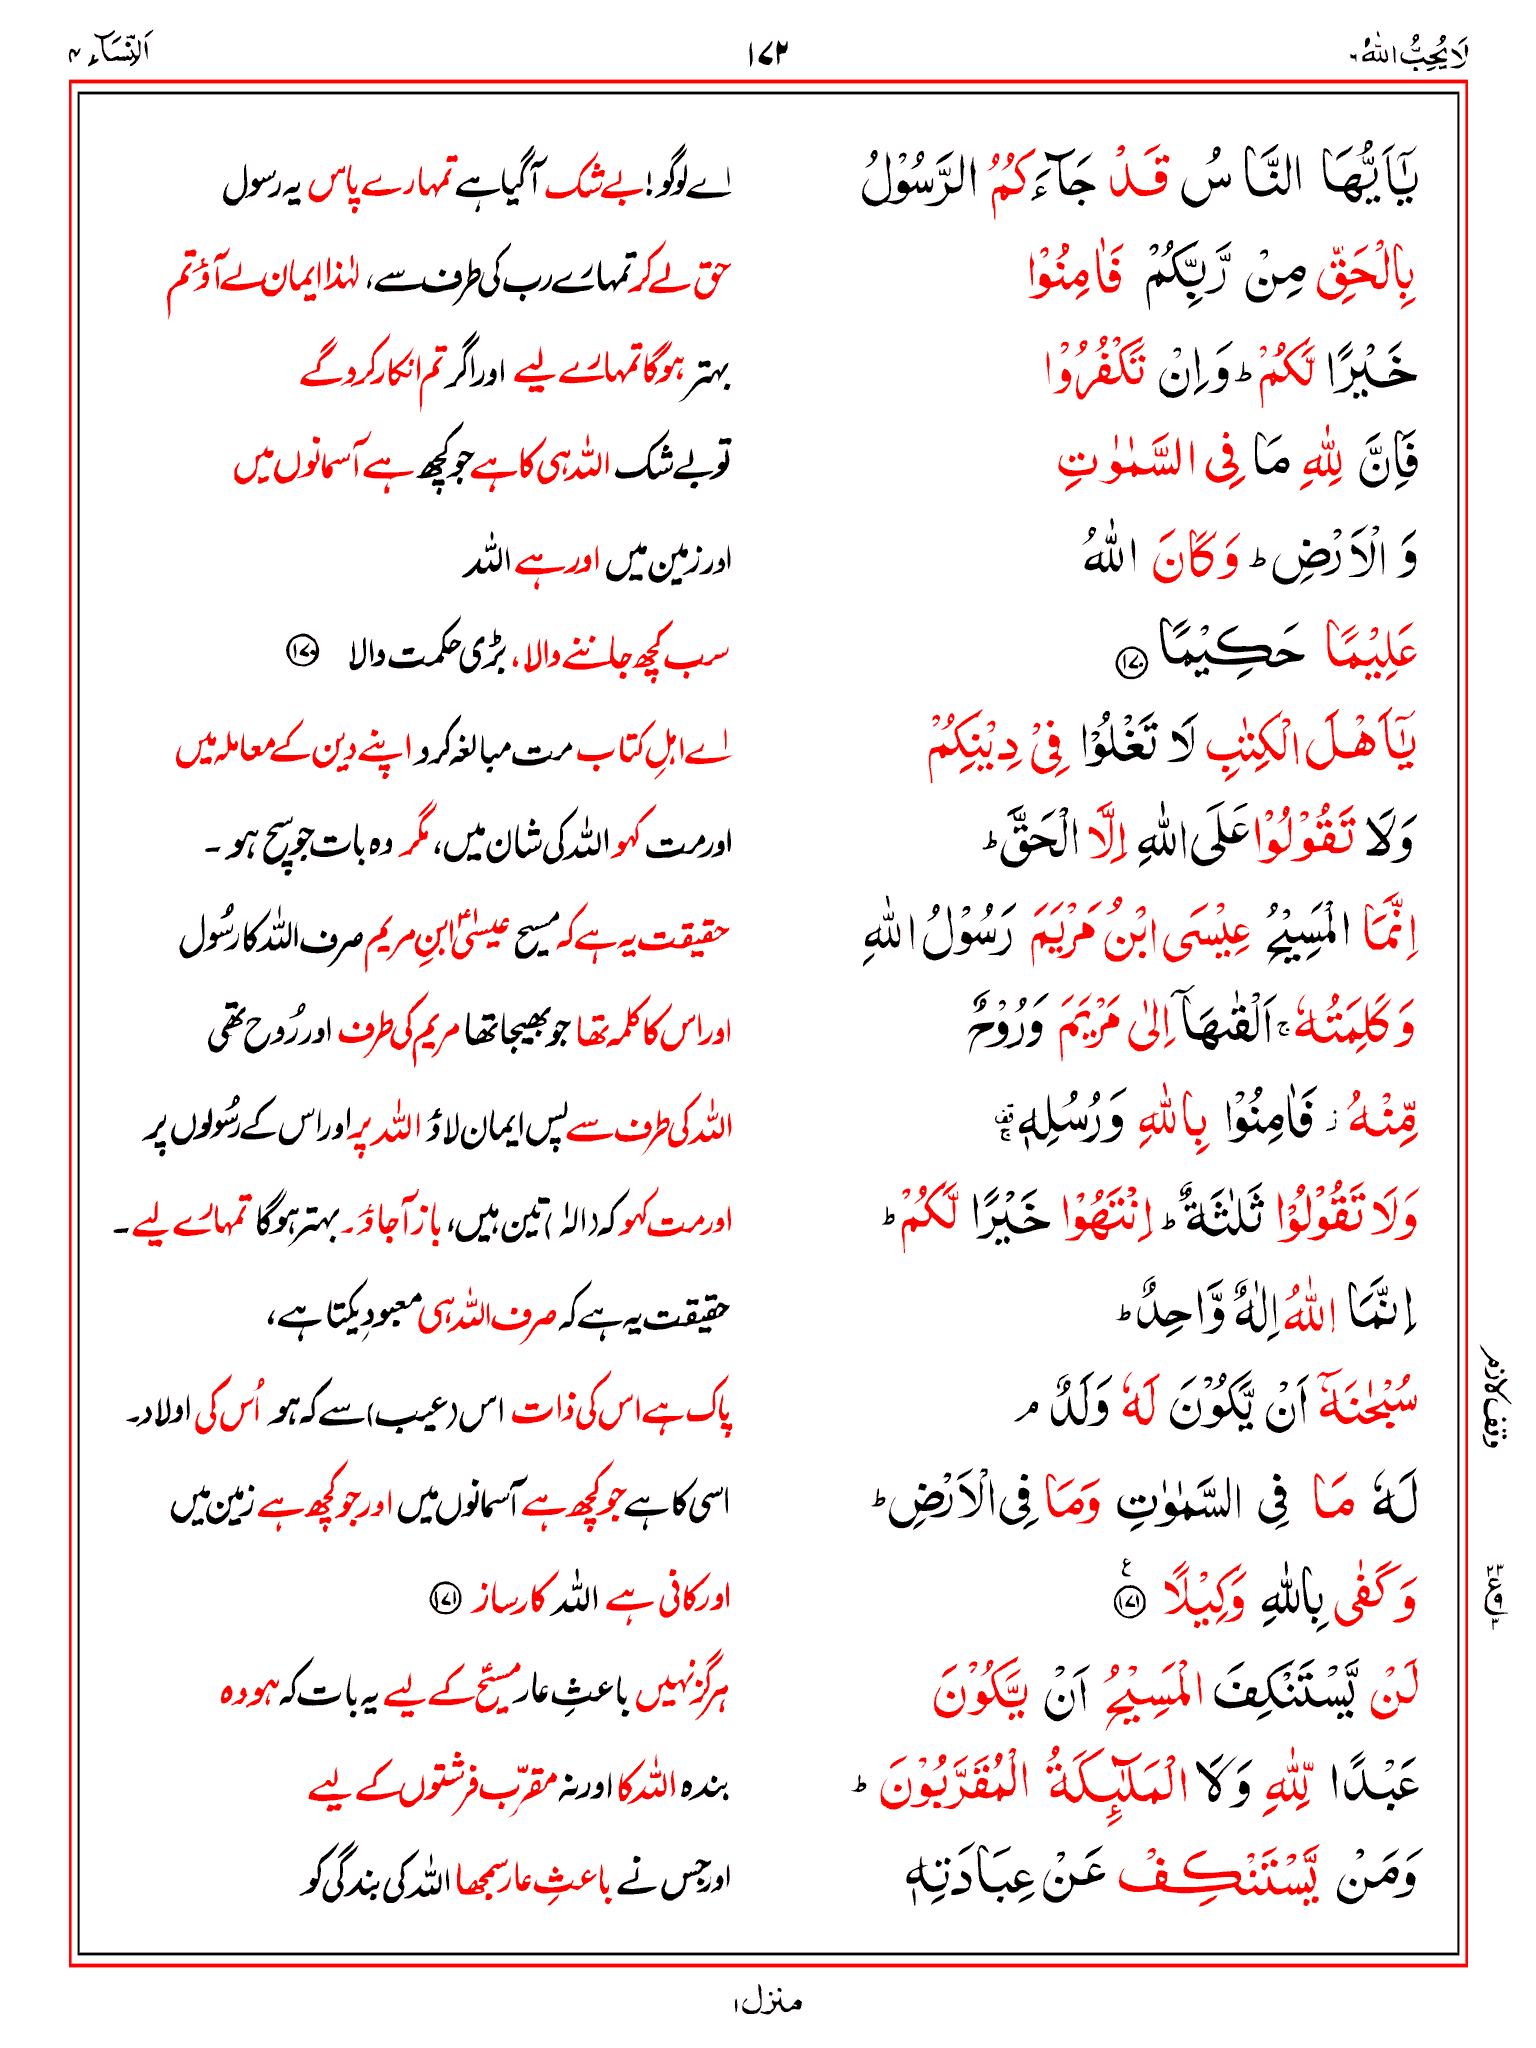 لَا يُحِبُّ اللّٰهُ ٦
١٧٢
اَلنِّسَآء ٤
يٰٓاَيُّهَا النَّاسُ قَدْ جَآءَكُمُ الرَّسُوْلُ
اے لوگو! بے شک آگیا ہے تمہارے پاس یہ رسول
بِالْحَقِّ مِنْ رَّبِّكُمْ فَاٰمِنُوْا
حق لے کر تمہارے رب کی طرف سے، لہٰذا ایمان لے آؤ تم
خَيْرًا لَّكُمْ ؕ وَاِنْ تَكْفُرُوْا
بہتر ہوگا تمہارے لیے اور اگر تم انکار کرو گے
فَاِنَّ لِلّٰهِ مَا فِى السَّمٰوٰتِ
تو بے شک اللہ ہی کا ہے جو کچھ ہے آسمانوں میں
وَ الْاَرْضِ ؕ وَكَانَ اللّٰهُ
اور زمین میں اور ہے اللہ
عَلِيْمًا حَكِيْمًا ١٧٠
سب کچھ جاننے والا، بڑی حکمت والا ١٧٠
يٰٓاَهْلَ الْكِتٰبِ لَا تَغْلُوْا فِىْ دِيْنِكُمْ
اے اہلِ کتاب مت مبالغہ کرو اپنے دین کے معاملہ میں
وَلَا تَقُوْلُوْا عَلَى اللّٰهِ اِلَّا الْحَقَّ ؕ
اور مت کہو اللہ کی شان میں، مگر وہ بات جو سچ ہو ۔
اِنَّمَا الْمَسِيْحُ عِيْسَى ابْنُ مَرْيَمَ رَسُوْلُ اللّٰهِ
حقیقت یہ ہے کہ مسیح عیسیٰؑ ابنِ مریم صرف اللہ کا رسُول
وَكَلِمَتُهٗ ۚ اَلْقٰىهَآ اِلٰى مَرْيَمَ وَرُوْحٌ
اور اس کا کلمہ تھا جو بھیجا تھا مریم کی طرف اور رُوح تھی
مِّنْهُ ز فَاٰمِنُوْا بِاللّٰهِ وَرُسُلِهٖ ۚ قف
اللہ کی طرف سے پس ایمان لاؤ اللہ پر اور اس کے رسُولوں پر
وَلَا تَقُوْلُوْا ثَلٰثَةٌ ؕ اِنْتَهُوْا خَيْرًا لَّكُمْ ؕ
اور مت کہو کہ (الٰہ) تین ہیں، باز آجاؤ۔ بہتر ہوگا تمہارے لیے ۔
اِنَّمَا اللّٰهُ اِلٰهٌ وَّاحِدٌ ؕ
حقیقت یہ ہے کہ صرف اللہ ہی معبودِ یکتا ہے،
سُبْحٰنَهٗٓ اَنْ يَّكُوْنَ لَهٗ وَلَدٌ ۘ
پاک ہے اس کی ذات اس (عیب) سے کہ ہو اُس کی اولاد۔
وقف لازم
لَهٗ مَا فِى السَّمٰوٰتِ وَمَا فِى الْاَرْضِ ؕ
اسی کا ہے جو کچھ ہے آسمانوں میں اور جو کچھ ہے زمین میں
وَكَفٰى بِاللّٰهِ وَكِيْلًا ١٧١ ع
اور کافی ہے اللہ کارساز ١٧١
لَنْ يَّسْتَنْكِفَ الْمَسِيْحُ اَنْ يَّكُوْنَ
ہرگز نہیں باعثِ عار مسیحؑ کے لیے یہ بات کہ ہو وہ
عَبْدًا لِّلّٰهِ وَلَا الْمَلٰٓئِكَةُ الْمُقَرَّبُوْنَ ؕ
بندہ اللہ کا اور نہ مقرّب فرشتوں کے لیے
وَمَنْ يَّسْتَنْكِفْ عَنْ عِبَادَتِهٖ
اور جس نے باعثِ عار سمجھا اللہ کی بندگی کو
منزل ١